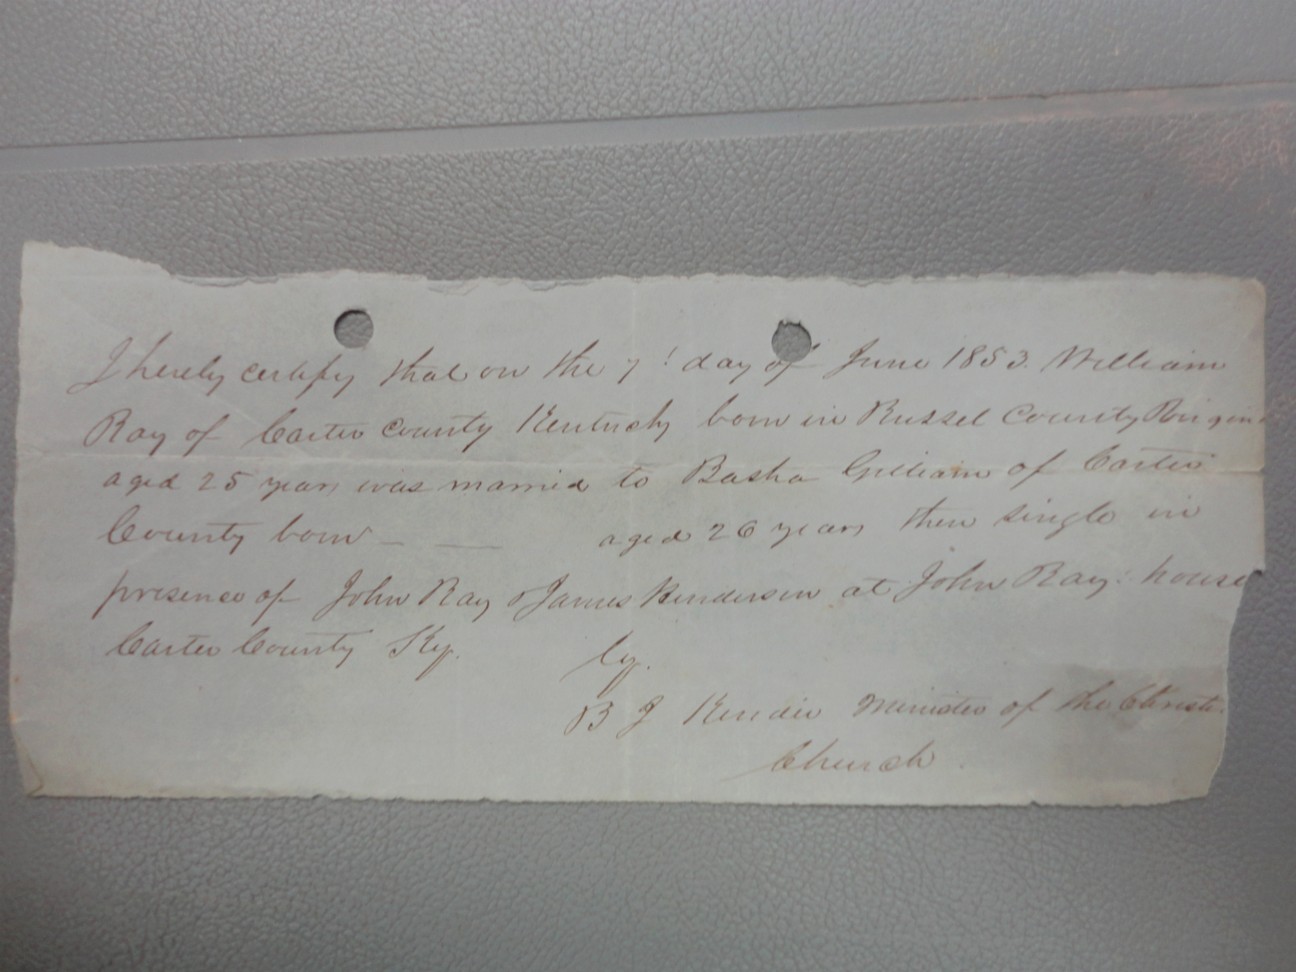 I hereby certify that on the 7! day of June 1853. William
Ray of Carter County Kentucky born in Russel County
aged 25 years was married to Basha Gilliam of Carter
County born — — aged 26 years then single in
presence of John Ray & James Henderson at John Ray. house
Carter County Ky. by.
B J Minister of the Christi
Church.